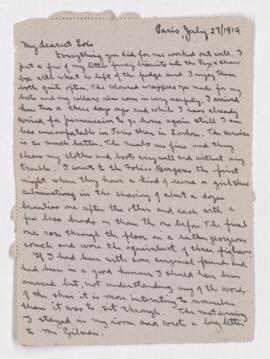 Paris, July 27/1919
My dearest Lois
Everything you did for me worked out well. I
put a few of my little fancy biscuits into the Page & Shaw
box with what is left of the fudge and I enjoy them
both quite often. The coloured wrappers you made for my
hats and my collars also come in very usefully. I arrived
here two & three days ago and while I have already
wired for permission to go home again still I am
less uncomfortable in Paris than in London. The service
is so much better. The meals are fine and they
clean my clothes and boots very well and without any
trouble. I went to the Folies Bergères the first
night when they have a kind of revue or girl show
culminating in the showing of about a dozen
beauties one after the other and each with a
few less beads on than the one before. The final
one rose through the floor on a rather gorgeous
couch and wore the equivalent of three
If I had been with some congenial friend and
had been in a good humour I should have been
amused but, not understanding any of the words,
of the show it is more interesting to remember
than it was to sit through. The next evening
I stayed in my room and wrote a long letter
to Mr Gilman.